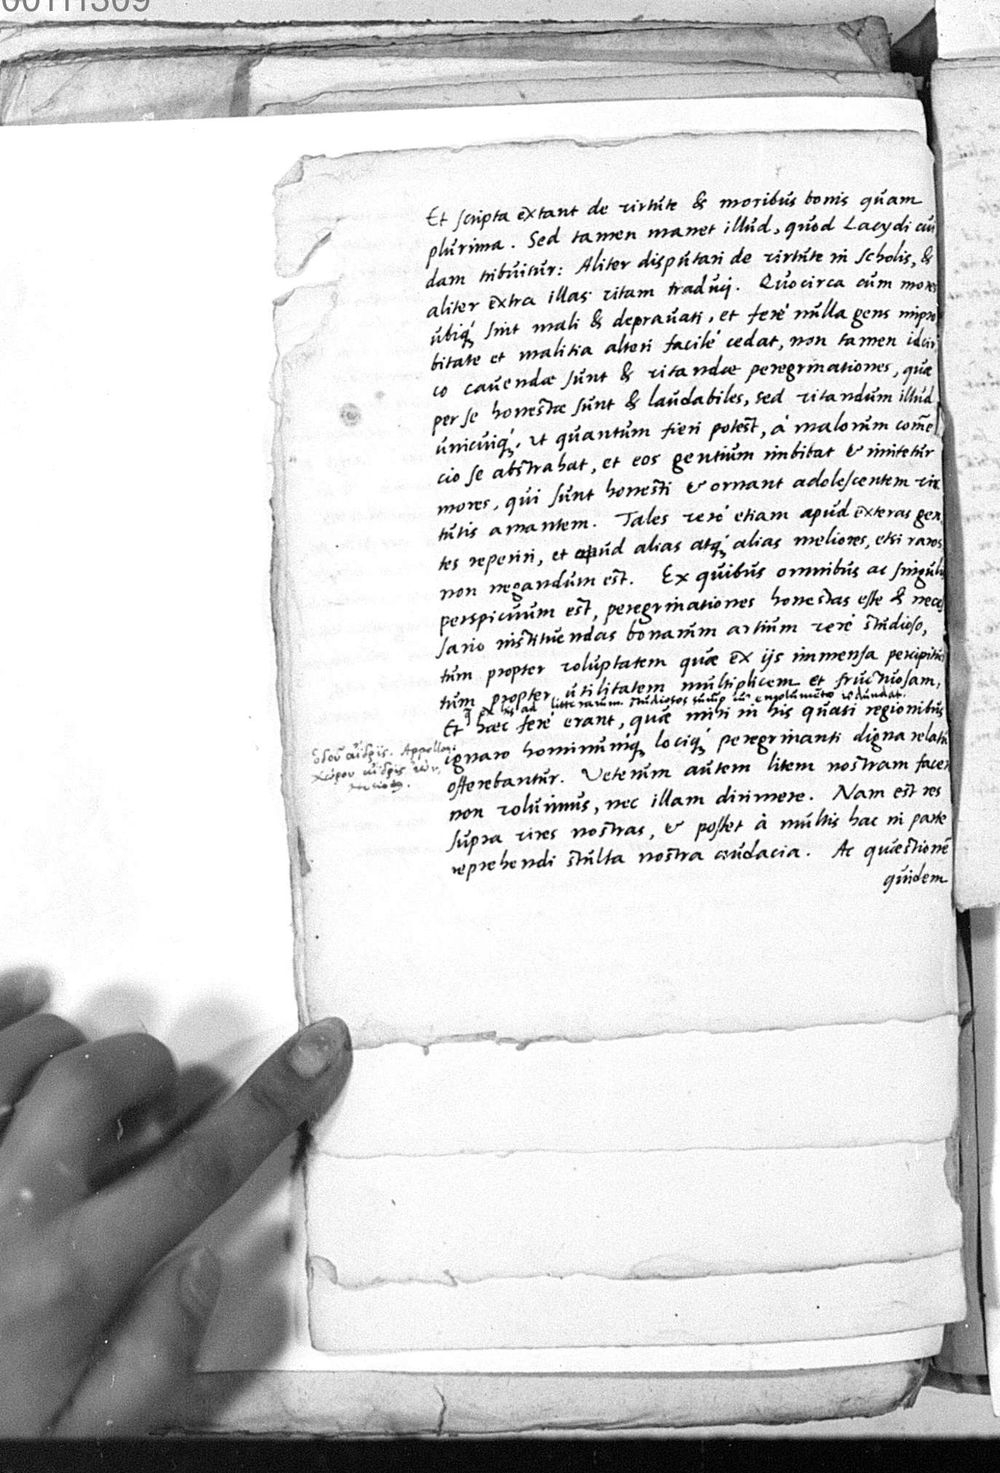 Et scripta extant de virtute & moribus bonis quam
plurima. Sed tamen manet illud, quod Lacydi cui
dam tribuitur: Aliter disputari de virtute in scholis, &
aliter extra illas vitam traduci. Quocirca cum mores
ubiq; sint mali & depravati, et ferè nulla gens impro
bitate et malitia alteri facilè cedat, non tamen idcir
co cavendæ sunt & vitandæ peregrinationes, quæ
per se honestæ sunt & laudabiles, sed vitandum illud
unicuiq;, ut quantum fieri potest, à malorum com̃e
cio se abstrahat, et eos gentium imbibat & imitetur
mores, qui sunt honesti & ornant adolescentem vir
tutis amantem. Tales verò etiam apud exteras gen
tes reperiri, et apud alias atq; alias meliores, etsi raros
non negandum est. Ex quibus omnibus ac singulis
perspicuum est, peregrinationes honestas esse & neces
sario instituendas bonarum artium verè studioso,
tum propter voluptatem quæ ex ijs immensa percipitur
tum propter utilitatem multiplicem et fructuosam,
ex his ad litterarum studiosos redundat.
Et hæc ferè erant, quæ mihi in his quasi regionibus
ὁδοῦ ἀίδρις. Appollon:
χώρου ἀίδρις
ignaro hominumq; lociq; peregrinanti digna relatu
offerebantur. Veterum autem litem nostram facere
non volumus, nec illam dirimere. Nam est res
supra vires nostras, & posset à multis hac in parte
reprehendi stulta nostra audacia. Ac quæstionẽ
quidem